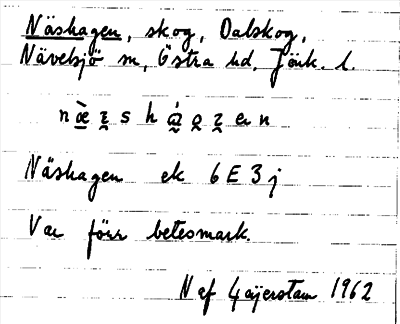 Näshagen, skog, Dalskog,
Nävelsjö sn, Östra hd, Jönk. l.
Näshagen ek 6E3j
Var förr betesmark.
N af Geijerstam 1962